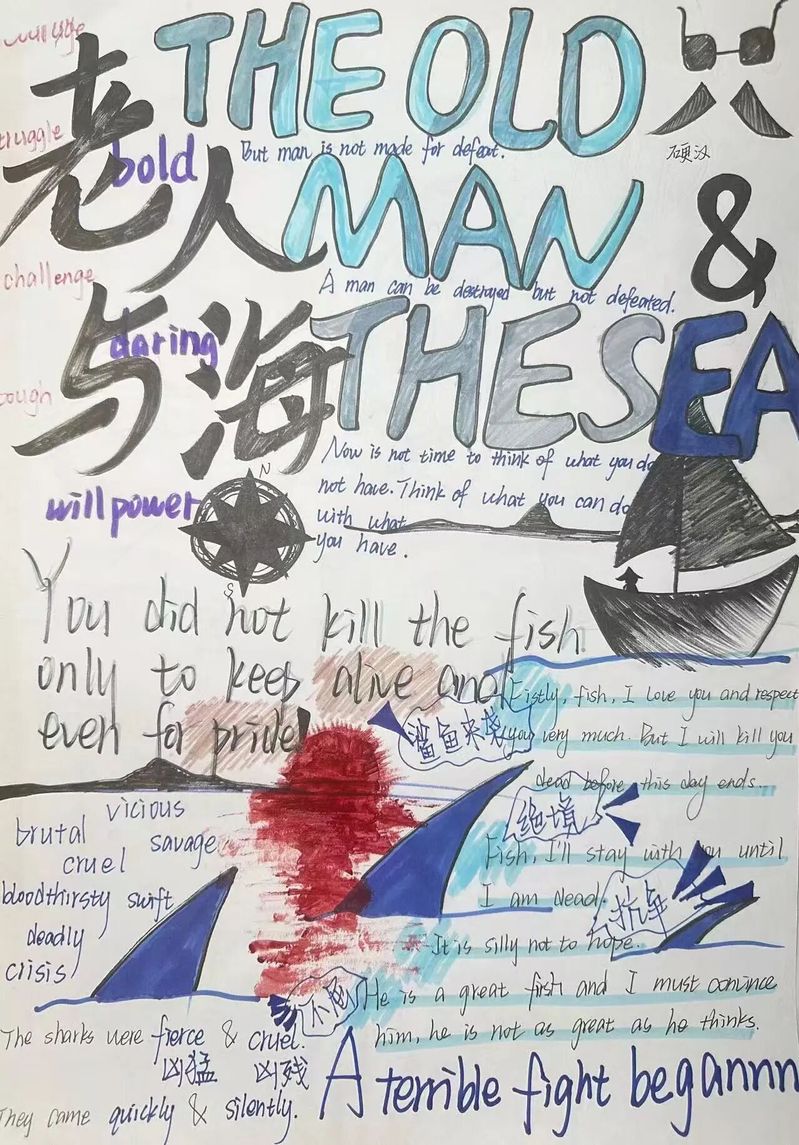 THE OLD
老人
bold
But man is not made for defeat.
硬汉
MAN
&
challenge
A man can be destroyed but not defeated.
与海
daring
THE SEA
tough
Now is not time to think of what you do
not have. Think of what you can do
with what
you have.
willpower
N
S
You did not kill the fish
only to keep alive and
even for pride!
鲨鱼来袭
Fistly, fish, I love you and respect
you very much. But I will kill you
dead before this day ends...
vicious
brutal
savage
cruel
bloodthirsty swift
deadly
crisis
绝境
Fish, I'll stay with you until
I am dead.
抗争
It is silly not to hope.
He is a great fish and I must convince
him, he is not as great as he thinks.
The sharks were fierce & cruel.
凶猛 凶残
They came quickly & silently.
A terrible fight begannnn